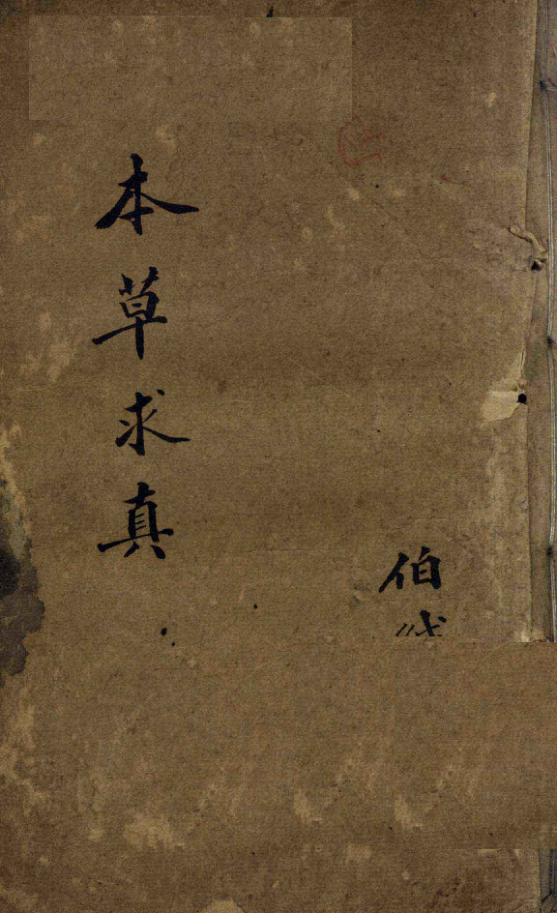 本草求真
伯